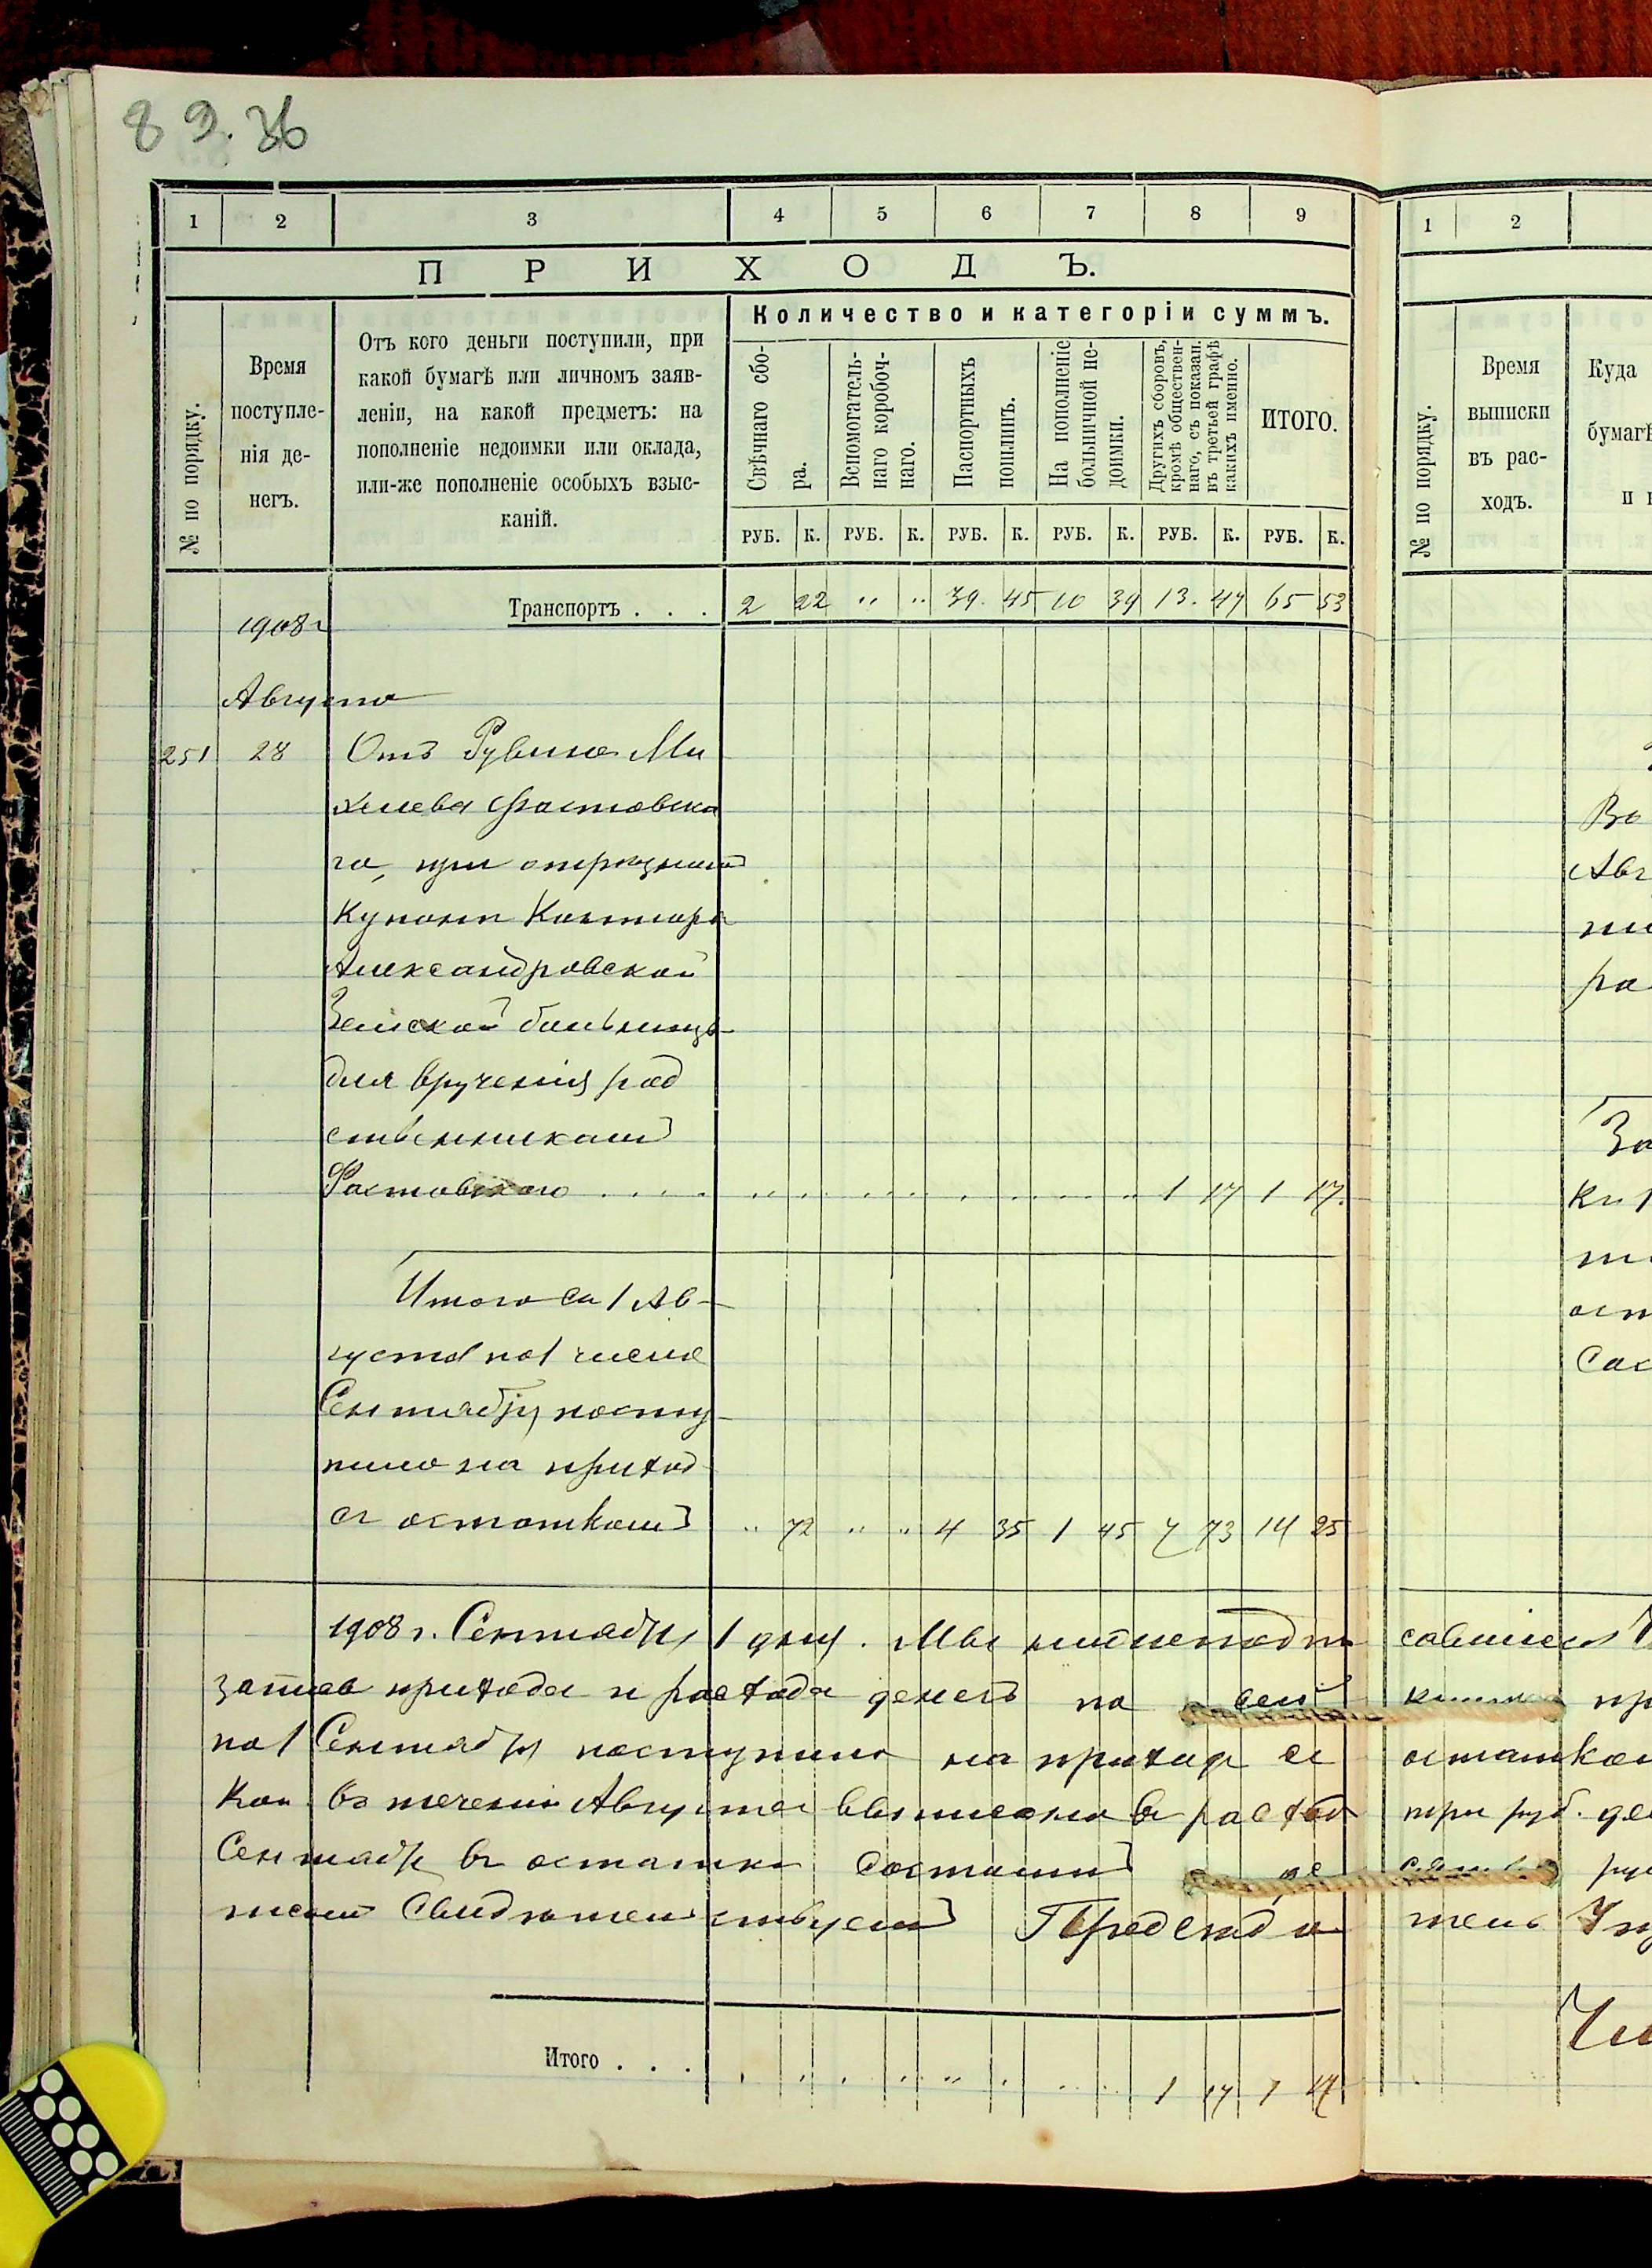 8 9. 36
1 2 3 4 5 6 7 8 9
П Р И Х О Д Ъ.
№ по порядку.
Время
поступле-
нія де-
негъ.
Отъ кого деньги поступили, при
какой бумагѣ или личномъ заяв-
леніи, на какой предметъ: на
пополненіе недоимки или оклада,
или-же пополненіе особыхъ взыс-
каній.
Количество и категоріи суммъ.
Свѣчнаго сбо-
ра.
Вспомогатель-
наго коробоч-
наго.
Паспортныхъ
пошлинъ.
На пополненіе
больничной не-
доимки.
Другихъ сборовъ,
кромѣ обществен-
наго, съ показан.
въ третьей графѣ
какихъ именно.
ИТОГО.
РУБ. К. РУБ. К. РУБ. К. РУБ. К. РУБ. К. РУБ. К.
Транспортъ . . . 2 22 " " 39. 45 10 39 13. 47 65 53
1908 г
Августа
251 28 Отъ Рувина Ми
хелева Фастовска
го, при
Купонъ Контора
Александровской
Земской больницы
для врученія род
ственникамъ
Фастовского . . . . 1 17 1 17.
Итого съ 1 Ав-
густа по 1 число
Сентября посту-
пило на приход
съ остаткомъ " 72 " " 4 35 1 45 7 73 14 25
1908 г. Сентября 1 дня. Мы нижеподпи
прихода и расхода денегъ по сей
по 1 Сентября поступило на приход съ
Коп въ теченіи Августа выписано въ расход
Сентября въ остатки состоитъ де
Свидѣтельствуемъ Председа
Итого . . . 1 17 1 17
1 2
№ по порядку.
Время
выписки
въ рас-
ходъ.
Куда
бумагѣ
и
Во
Авг
ра
За
ост
Сос
савшіеся
остатком
три руб.
тель